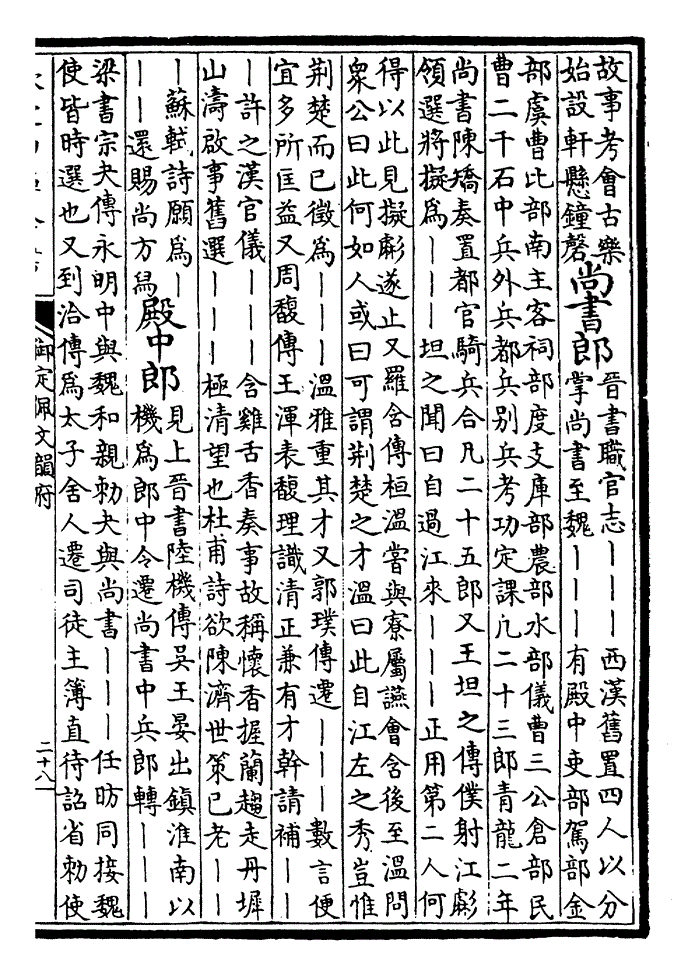 故事考會古樂
始設軒懸鐘磬
尚書郎
晉書職官志｜｜｜西漢舊置四人以分
掌尚書至魏｜｜｜有殿中吏部駕部金
部虞曹比部南主客祠部度支庫部農部水部儀曹三公倉部民
曹二千石中兵外兵都兵别兵考功定課凡二十三郎青龍二年
尚書陳矯奏置都官騎兵合凡二十五郎又王坦之傳僕射江彪
領選將擬爲｜｜｜坦之聞曰自過江來｜｜｜正用第二人何
得以此見擬彪遂止又羅含傳桓溫嘗與寮屬讌會含後至溫問
衆公曰此何如人或曰可謂荆楚之才溫曰此自江左之秀豈惟
荆楚而已徵爲｜｜｜溫雅重其才又郭璞傳遷｜｜｜數言便
宜多所匡益又周馥傳王渾表馥理識清正兼有才幹請補｜｜
｜許之漢官儀｜｜｜含雞舌香奏事故稱懷香握蘭趨走丹墀
山濤啟事舊選｜｜｜極清望也杜甫詩欲陳濟世策已老｜｜
｜蘇軾詩願爲｜
｜｜還賜尚方舄
殿中郎
見上晉書陸機傳吳王晏出鎮淮南以
機爲郎中令遷尚書中兵郎轉｜｜｜
梁書宗夬傳永明中與魏和親勅夬與尚書｜｜｜任昉同接魏
使皆時選也又到洽傳爲太子舍人遷司徒主簿直待詔省勅使
御定佩文韻府
二十八